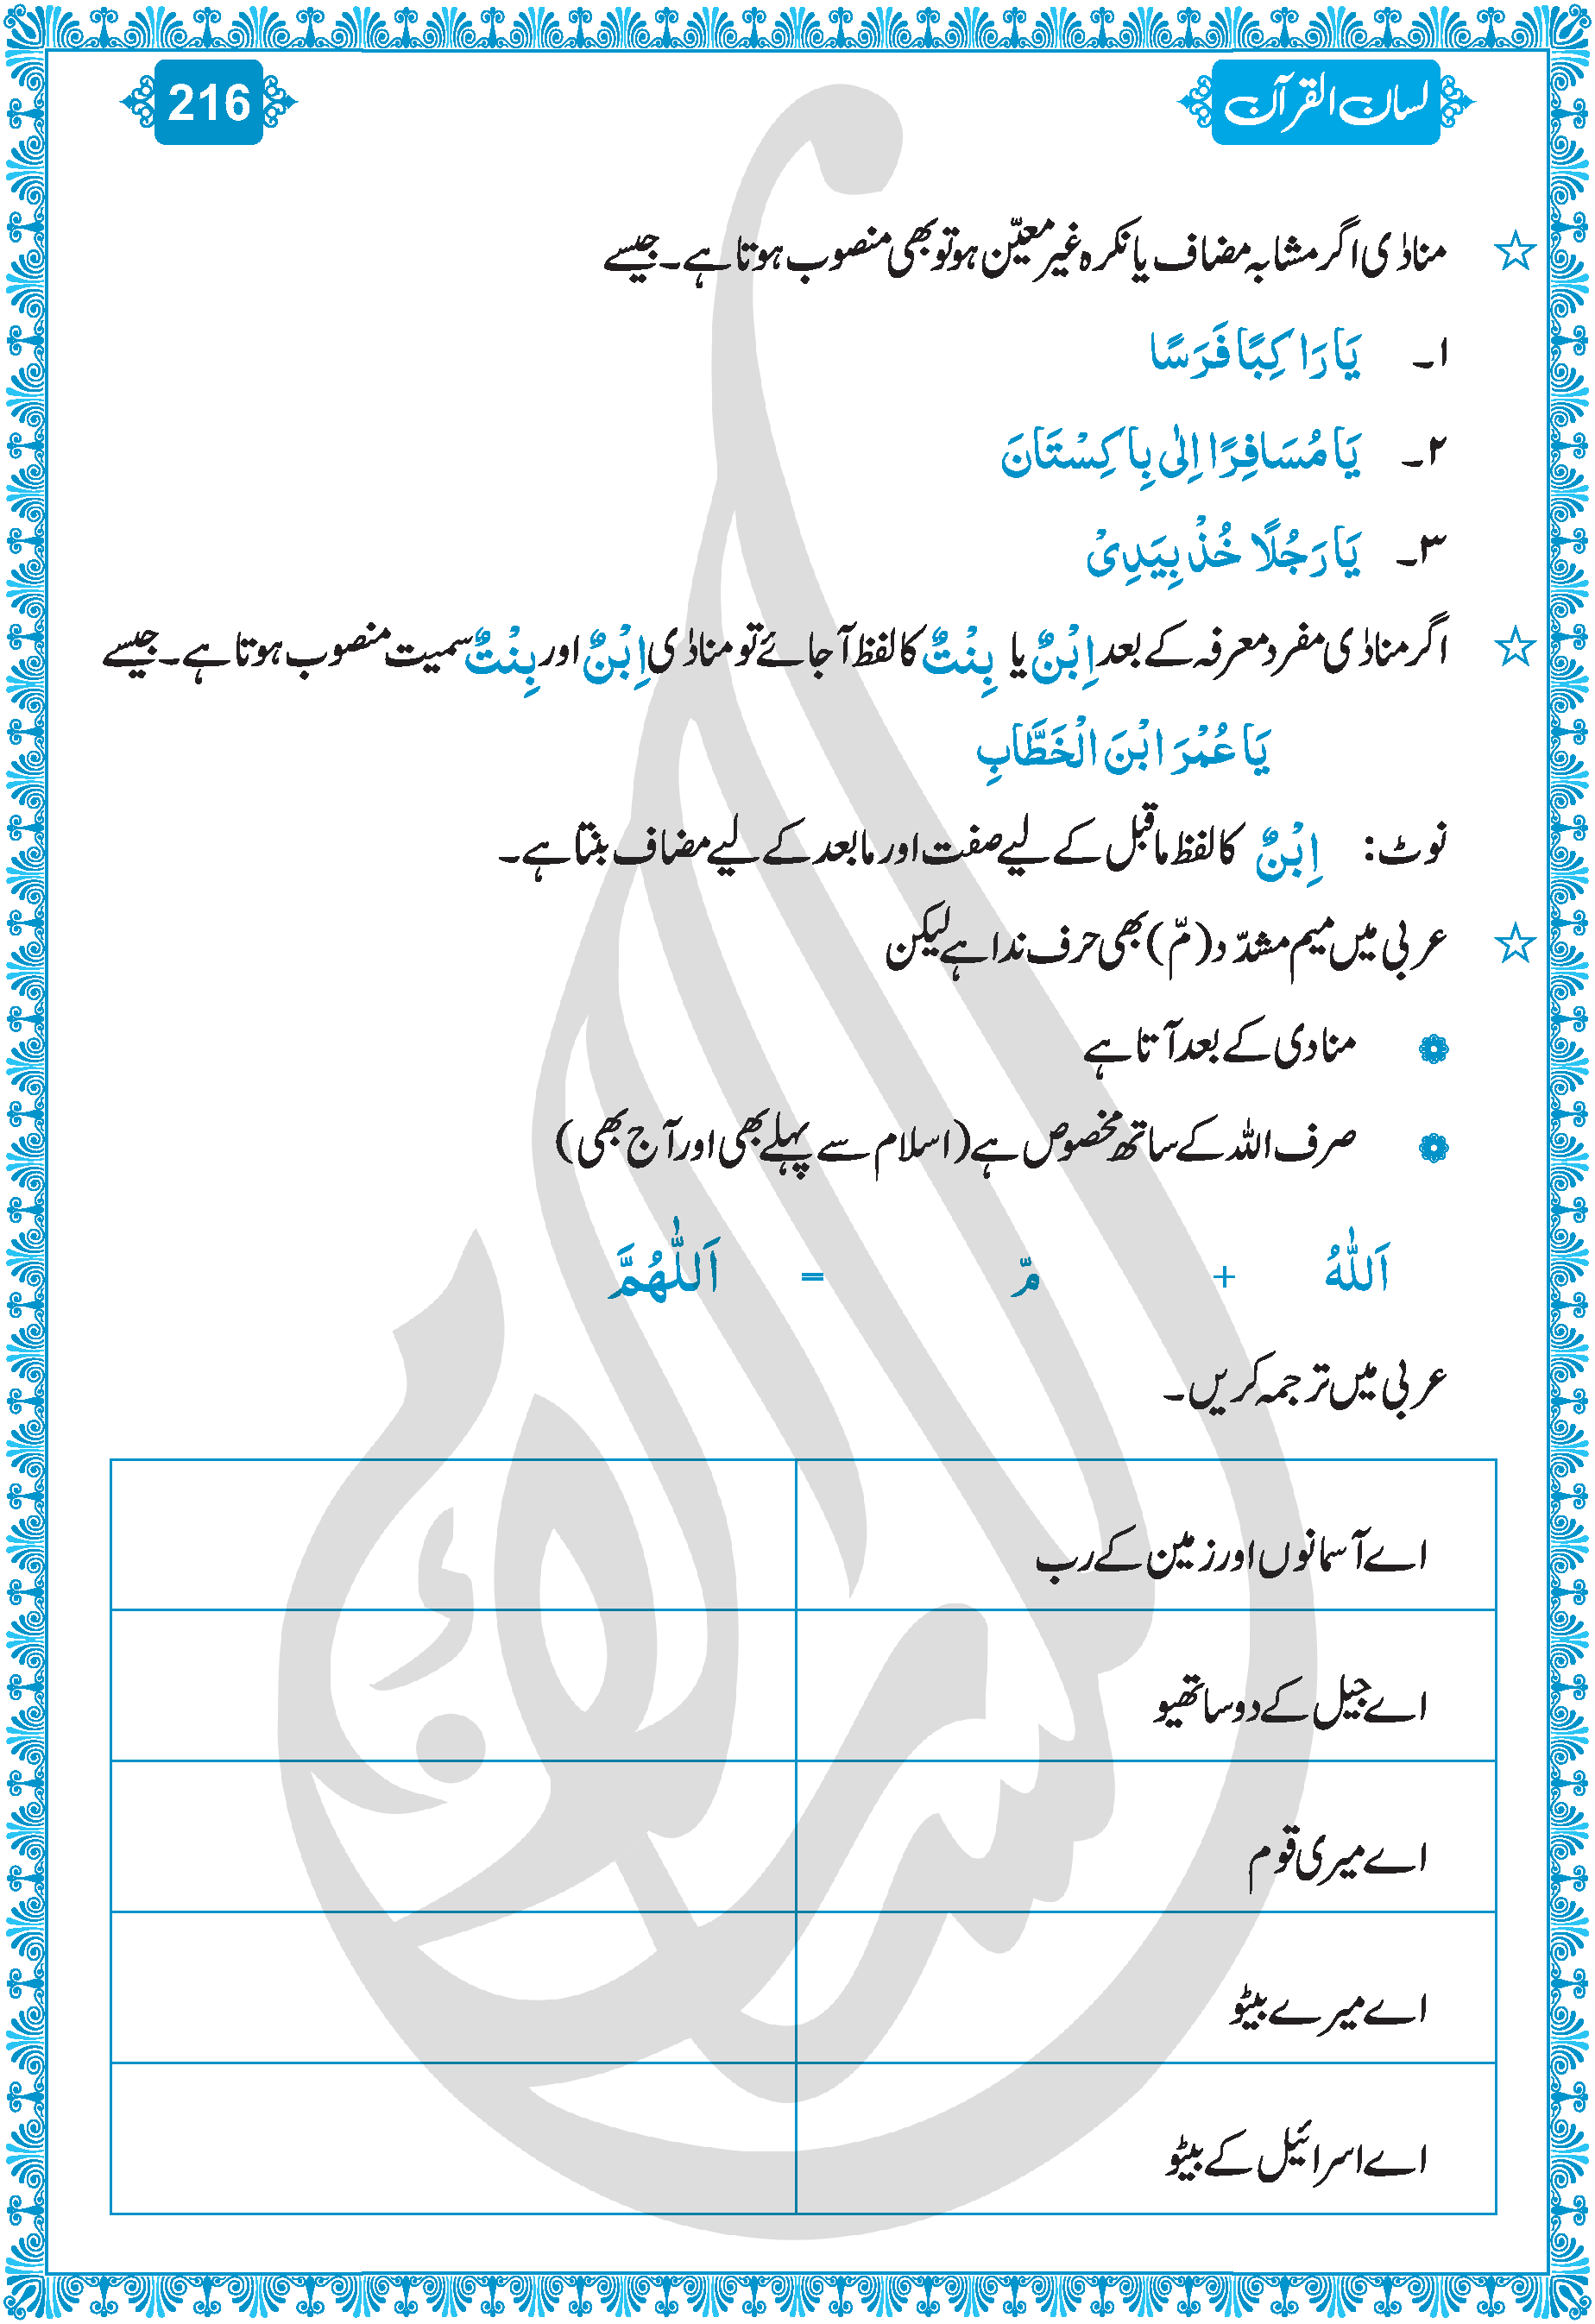 لسان القرآن
216
منادٰی اگر مشابہ مضاف یا نکرہ غیر معیّن ہو تو بھی منصوب ہوتا ہے۔ جیسے
۱۔ يَا رَاكِبًا فَرَسًا
۲۔ يَا مُسَافِرًا اِلٰى بِاكِسْتَانَ
۳۔ يَا رَجُلًا خُذْ بِيَدِىْ
اگر منادٰی مفرد معرفہ کے بعد اِبْنٌ یا بِنْتٌ کا لفظ آ جائے تو منادٰی اِبْنٌ اور بِنْتٌ سمیت منصوب ہوتا ہے۔ جیسے
يَا عُمْرَ ابْنَ الْخَطَّابِ
نوٹ: اِبْنٌ کا لفظ ماقبل کے لیے صفت اور مابعد کے لیے مضاف بنتا ہے۔
عربی میں میم مشدّد (مّ) بھی حرف ندا ہے لیکن
منادی کے بعد آتا ہے
صرف اللہ کے ساتھ مخصوص ہے (اسلام سے پہلے بھی اور آج بھی)
اَللّٰهُ + مّ = اَللّٰهُمَّ
عربی میں ترجمہ کریں۔
اے آسمانوں اور زمین کے رب
اے جیل کے دو ساتھیو
اے میری قوم
اے میرے بیٹو
اے اسرائیل کے بیٹو